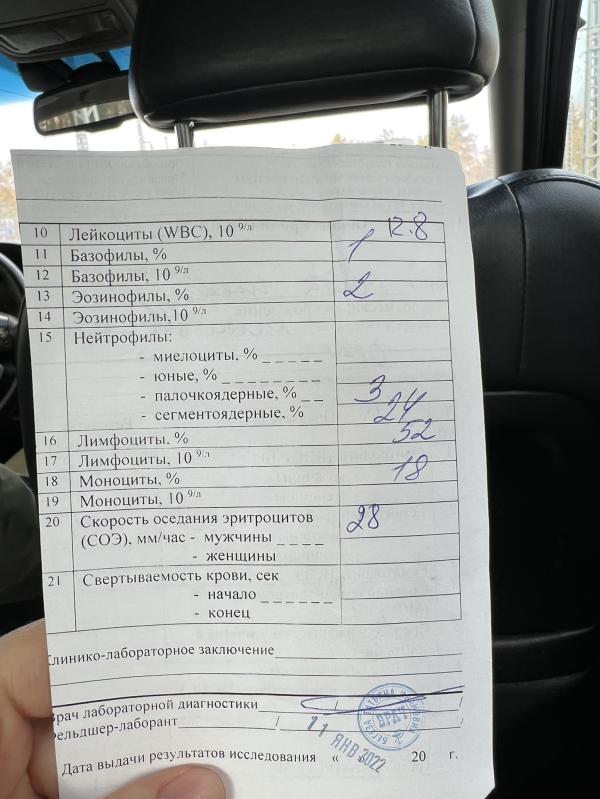 10 Лейкоциты (WBC), 10 9/л 12.8
11 Базофилы, % 1
12 Базофилы, 10 9/л
13 Эозинофилы, % 2
14 Эозинофилы,10 9/л
15 Нейтрофилы:
- миелоциты, % _ _ _ _ _
- юные, % _ _ _ _ _ _ _ _
- палочкоядерные, % _ _ 3
- сегментоядерные, % 24
16 Лимфоциты, % 52
17 Лимфоциты, 10 9/л
18 Моноциты, % 18
19 Моноциты, 10 9/л
20 Скорость оседания эритроцитов 28
(СОЭ), мм/час - мужчины _ _ _ _
- женщины
21 Свертываемость крови, сек
- начало _ _ _ _ _ _
- конец
Клинико-лабораторное заключение
Врач лабораторной диагностики / /
Фельдшер-лаборант / /
ВРАЧ
11 ЯНВ 2022
Дата выдачи результатов исследования « 20 г.